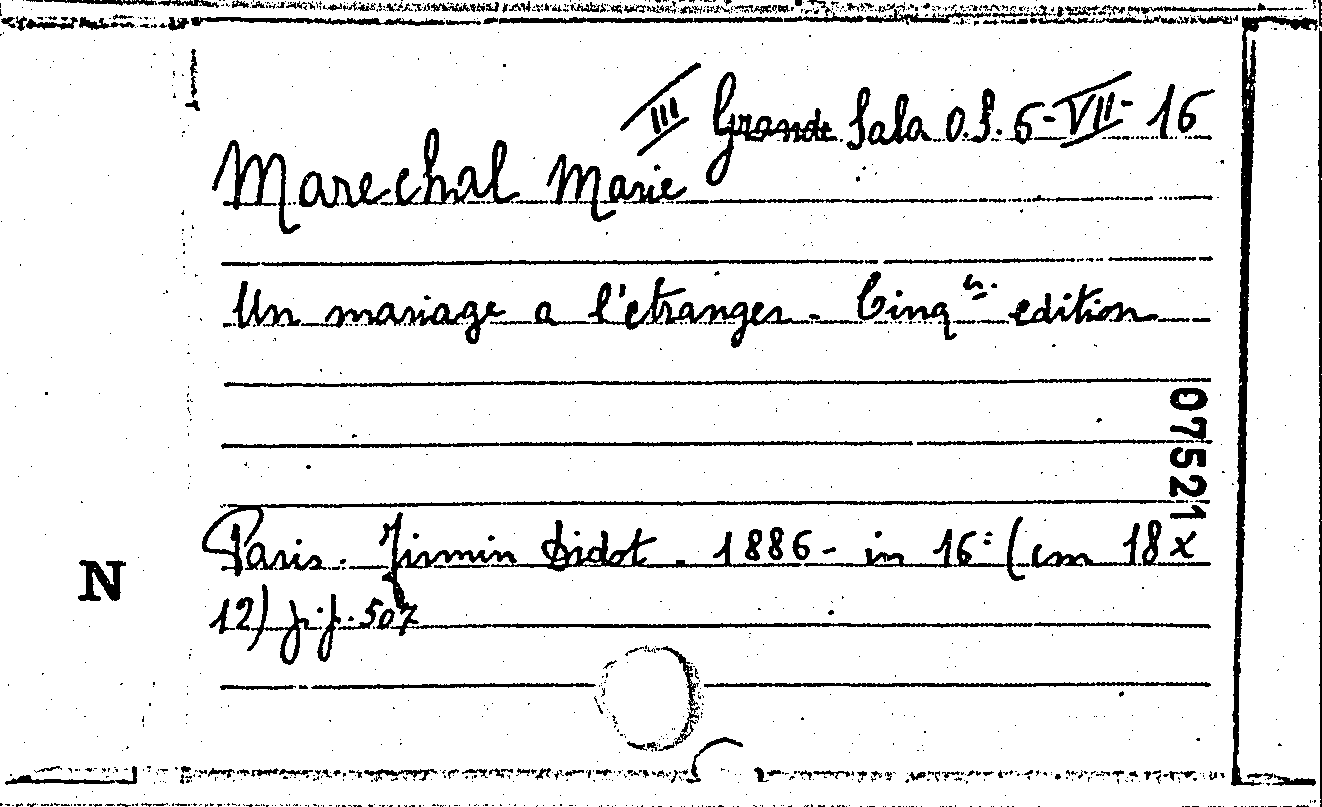 III Grande Sala O.S. 6-VII-16
Marechal Marie
Un mariage a l'etranger. Cinq.e edition
07521
Paris. Firmin Didot. 1886- in 16: (cm 18 x
N
12) p.p. 507